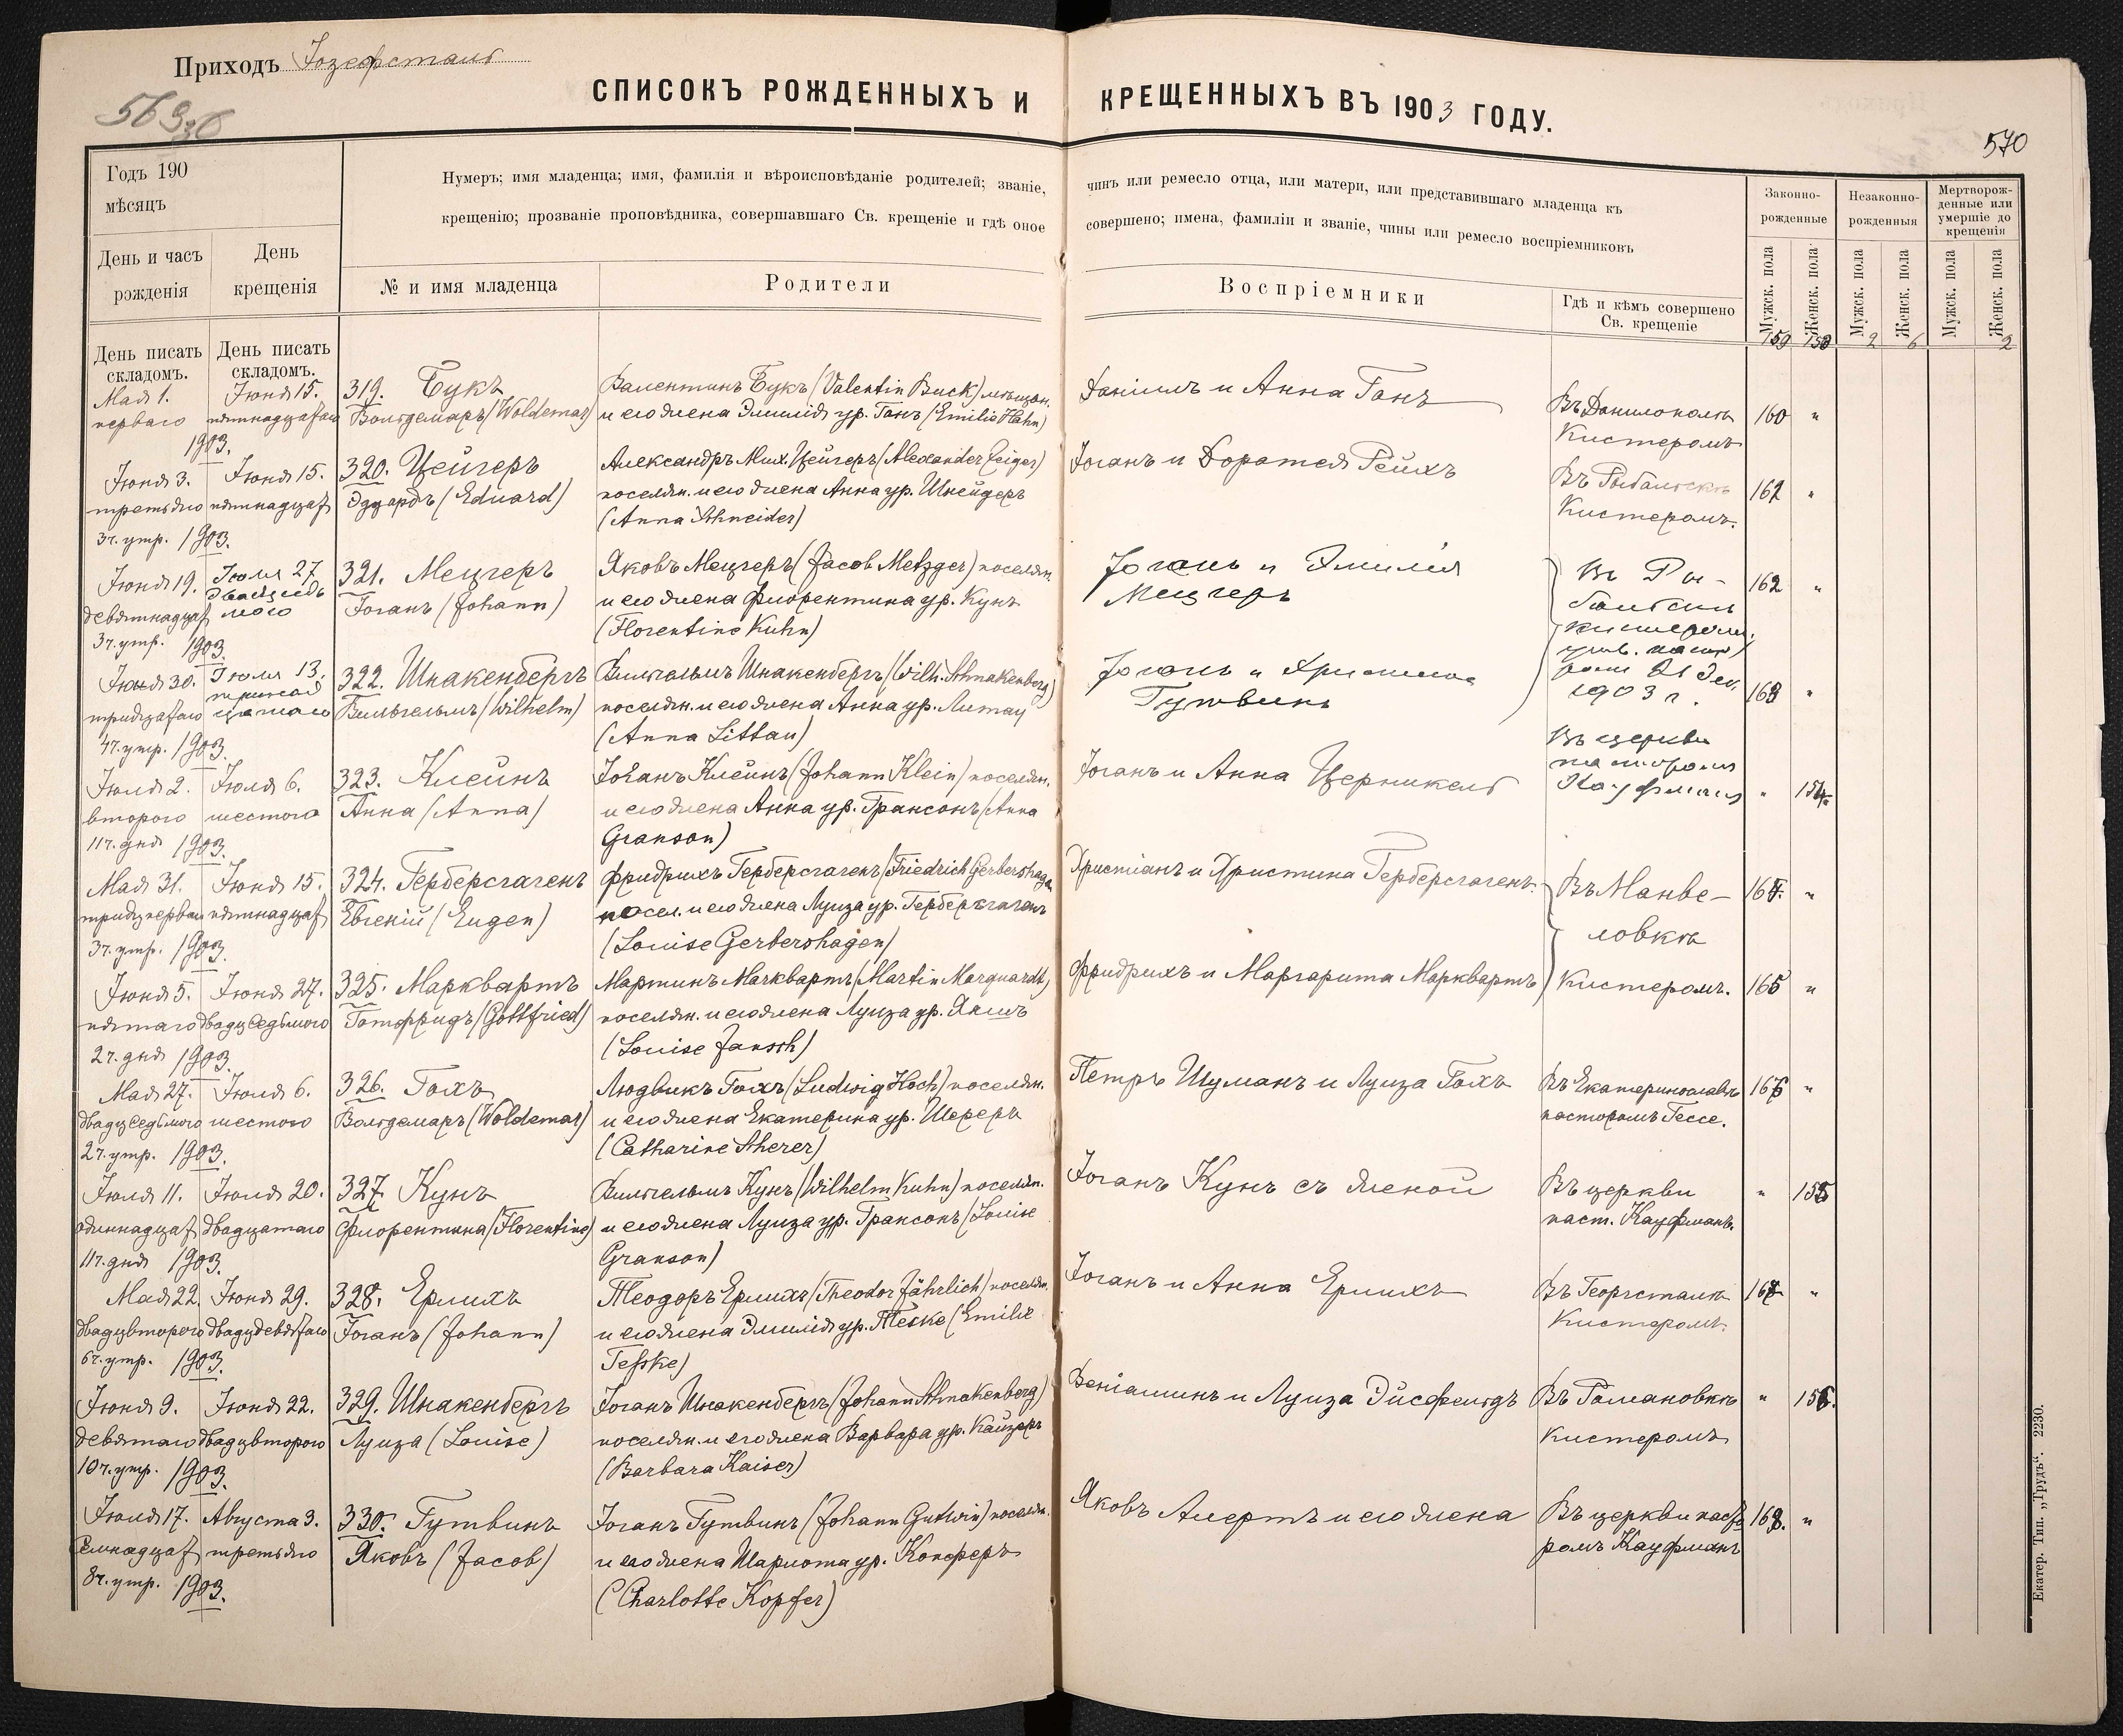 Приходъ Іозефсталь
СПИСОКЪ РОЖДЕННЫХЪ И КРЕЩЕННЫХЪ ВЪ 1903 ГОДУ.
570
Годъ 190
мѣсяцъ
День и часъ рожденія
День крещенія
Нумеръ; имя младенца; имя, фамилія и вѣроисповѣданіе родителей; званіе, чинъ или ремесло отца, или матери, или представившаго младенца къ
крещенію; прозваніе проповѣдника, совершавшаго Св. крещеніе и гдѣ оное совершено; имена, фамиліи и званіе, чины или ремесло воспріемниковъ
№ и имя младенца
Родители
Воспріемники
Гдѣ и кѣмъ совершено
Св. крещеніе
Законно-
рожденные
Незаконно-
рожденныя
Мертворож-
денные или
умершіе до
крещенія
Мужск. пола
Женск. пола
Мужск. пола
Женск. пола
Мужск. пола
Женск. пола
159 153 2 6 2
День писать
складомъ.
День писать
складомъ.
Мая 1. Іюня 15. 319. Букъ Валентинъ Букъ (Valentin Buck) мѣщан. Даніилъ и Анна Ганъ Въ Данилополѣ 160 "
перваго пятнадцатаго Вольдемаръ (Woldemar) и его жена Эмилія ур. Ганъ (Emilie Hahn) Кистеромъ
1903.
Іюня 3. Іюня 15. 320. Цейгеръ Александръ Мих. Цейгеръ (Alexander Zeiger) Іоганъ и Доротея Рейхъ Въ Рыбальскѣ "
третьяго пятнадцат Эдуардъ (Eduard) поселян. и его жена Анна ур. Шнейдеръ Кистеромъ.
3 ч. утр. 1903. (Anna Schneider)
Іюня 19. Іюля 27 321. Мецгеръ Яковъ Мецгеръ (Jacob Metzger) поселян. Іоганъ и Эмилія Въ Ры- 162 "
девятнадцат Іоганъ (Johann) и его жена Флорентина ур. Кунъ Мецгеръ бальскѣ
3 ч. утр. 1903. (Florentine Kuhn) кистером.
Іюня 30. Іюля 13. 322. Шнакенбергъ Вильгельмъ Шнакенбергъ (Wilh. Schnakenberg) Іоганъ и Христина 21 Дек. 1903 г. 163 "
тридцатаго Вильгельмъ (Wilhelm) поселян. и его жена Анна ур. Литау Гутвинъ
4 ч. утр. 1903. (Anna Littau)
Іюля 2. Іюля 6. 323. Клейнъ Іоганъ Клейнъ (Johann Klein) поселян. Іоганъ и Анна Церникель Въ церкви " 154
второго шестого Анна (Anna) и его жена Анна ур. Грансонъ (Anna пасторомъ
11 ч. дня 1903. Granson) Кауфманъ
Мая 31. Іюня 15. 324. Герберсгагенъ Фридрихъ Герберсгагенъ (Friedrich Gerbershagen Христіанъ и Христина Герберсгагенъ. Въ Манве- 164 "
тридц первам пятнадцат Евгеній (Eugen) посел. и его жена Луиза ур. Герберсгагенъ ловкѣ
3 ч. утр. 1903. (Louise Gerbershagen)
Іюня 5. Іюня 27. 325. Марквартъ Мартинъ Марквартъ (Martin Marquardt) Фридрихъ и Маргарита Марквартъ Кистеромъ. 165 "
пятаго двадц седьмого Готфридъ (Gottfried) поселян. и его жена Луиза ур. Яншъ
2 ч. дня 1903. (Louise Jansch)
Мая 27. Іюля 6. 326. Гохъ Людвикъ Гохъ (Ludwig Hoch) поселян. Петръ Шуманъ и Луиза Гохъ Въ Екатеринославѣ 166 "
двадц седьмого шестого Вольдемаръ (Woldemar) и его жена Екатерина ур. Шереръ пасторомъ Гессе.
2 ч. утр. 1903. (Catharine Scherer)
Іюля 11. Іюля 20. 327. Кунъ Вильгельмъ Кунъ (Wilhelm Kuhn) поселян. Іоганъ Кунъ съ женой Въ церкви " 155
одиннадцат двадцатаго Флорентина (Florentine) и его жена Луиза ур. Грансонъ (Louise паст. Кауфманъ.
11 ч. дня 1903. Granson)
Мая 22. Іюня 29. 328. Ерлихъ Теодоръ Ерлихъ (Theodor Jährlich) поселян. Іоганъ и Анна Ерлихъ Въ Георгсталѣ 167 "
двадц второго двадц девятаго Іоганъ (Johann) и его жена Эмилія ур. Теске (Emilie Кистеромъ.
6 ч. утр. 1903. Teßke)
Іюня 9. Іюня 22. 329. Шнакенбергъ Іоганъ Шнакенбергъ (Johann Schnakenberg) Веніаминъ и Луиза Эйсфельдъ Въ Романовкѣ " 156.
девятаго двадц второго Луиза (Louise) поселян. и его жена Варвара ур. Кайзеръ Кистеромъ
10 ч. утр. 1903. (Barbara Kaiser)
Іюля 17. Августа 3. 330. Гутвинъ Іоганъ Гутвинъ (Johann Gutwin) поселян. Яковъ Алертъ и его жена Въ церкви пасто 168. "
семнадцат третьяго Яковъ (Jacob) и его жена Шарлота ур. Копферъ ромъ Кауфманъ
8 ч. утр. 1903. (Charlotte Kopfer)
Екатер. Тип. „Трудъ“. 2230.